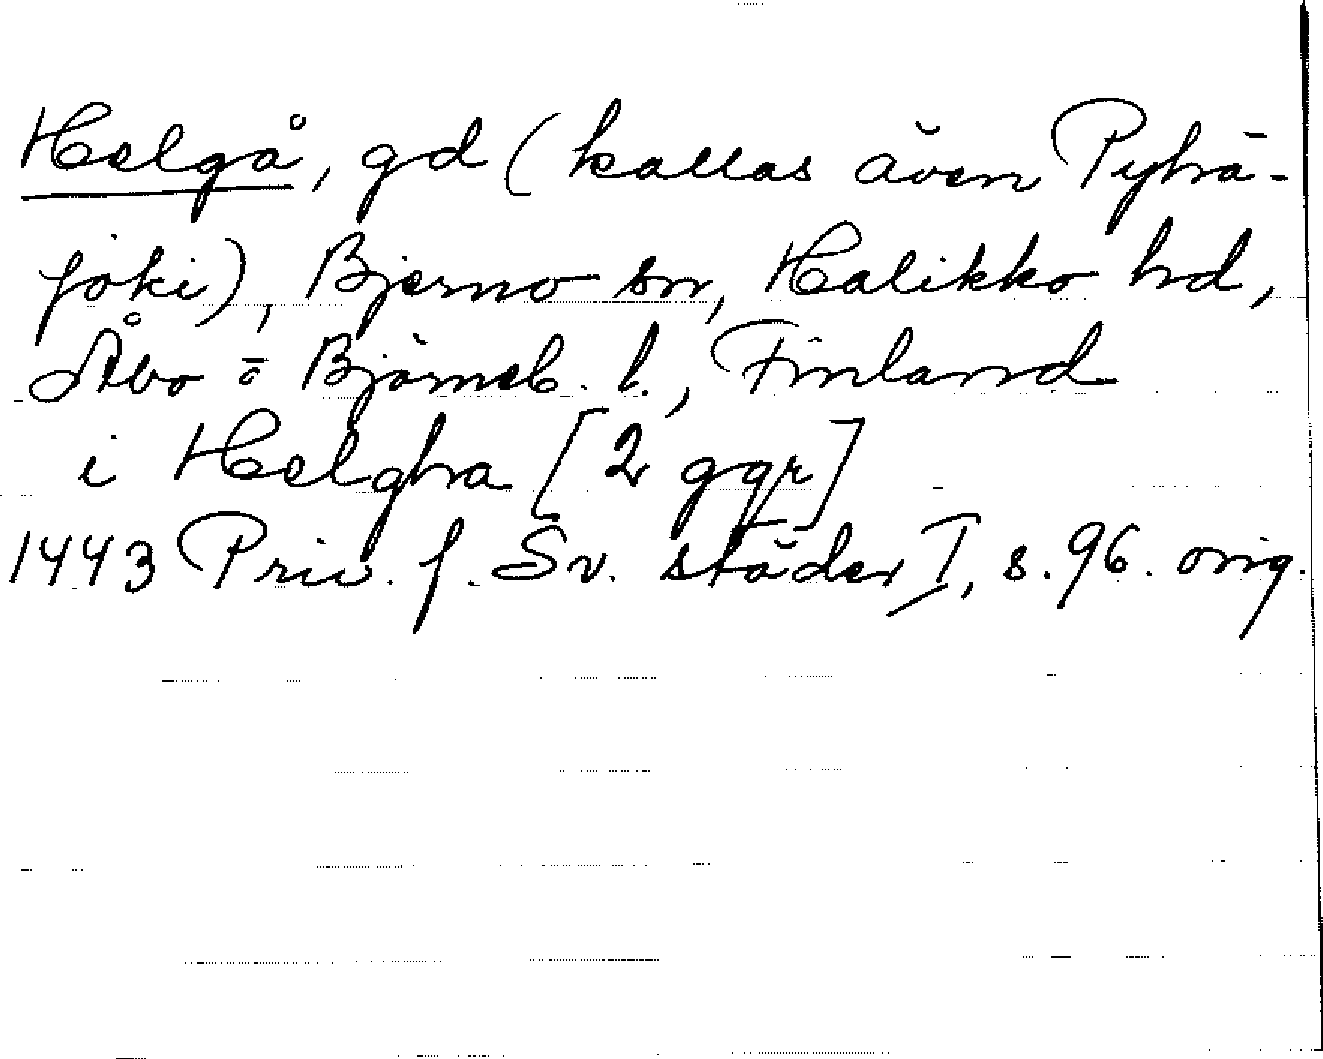 Helgå, gd (kallas även Pyhä-
joki), Bjerno sn, Halikko hd,
Åbo o Björneb. l., Finland
i Helgha [2 ggr]
1443 Priv. f. Sv. städer I, s. 96. orig.